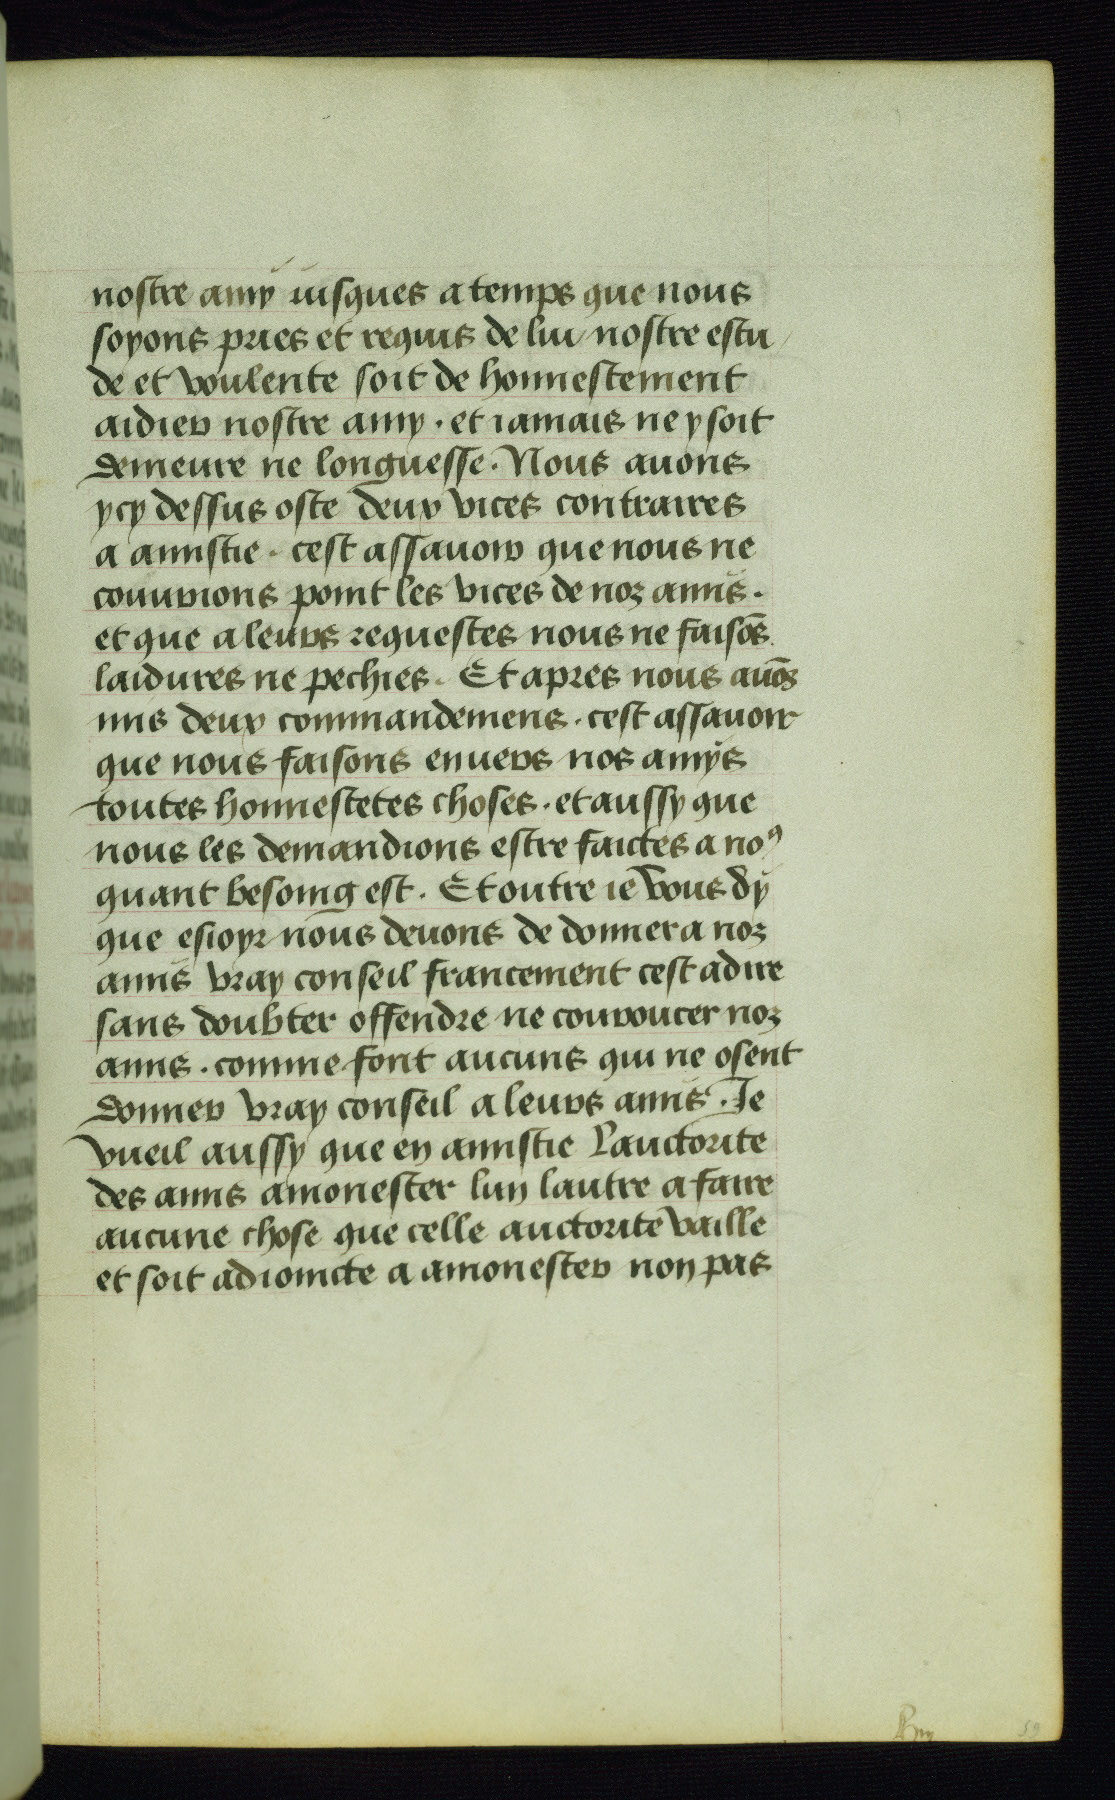 nostre amy iusques a temps que nous
soyons pries et requis de lui nostre estu
de et voulente soit de honnestement
aidier nostre amy . et iamais ne y soit
demeure ne longuesse . Nous auons
ycy dessus oste deux vices contraires
a amistie . cest assauoir que nous ne
couurions point les vices de noz amis .
et que a leurs requestes nous ne faisōs
laidures ne pechies . Et apres nous auōs
mis deux commandemens . cest assauoir
que nous faisons enuers nos amys
toutes honnestetes choses . et aussy que
nous les demandions estre faictes a noꝰ
quant besoing est . Et outre ie vous dy
que esioyr nous deuons de donner a noz
amis vray conseil francement cest adire
sans doubter offendre ne couroucer noz
amis . comme font aucuns qui ne osent
donner vray conseil a leurs amis . Je
vueil aussy que en amistie lauctorite
des amis amonester lun lautre a faire
aucune chose que celle auctorite vaille
et soit adioincte a amonester non pas
59